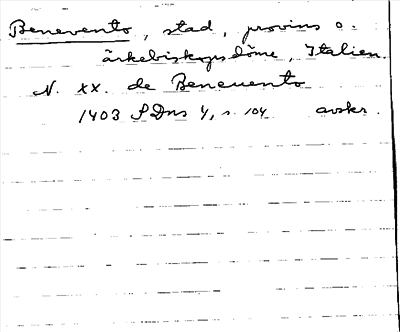 Benevento, stad, provins o.
ärkebiskopsdöme, Italien.
N. XX. de Beneuento
1403 SDns 1, s. 104 avskr.